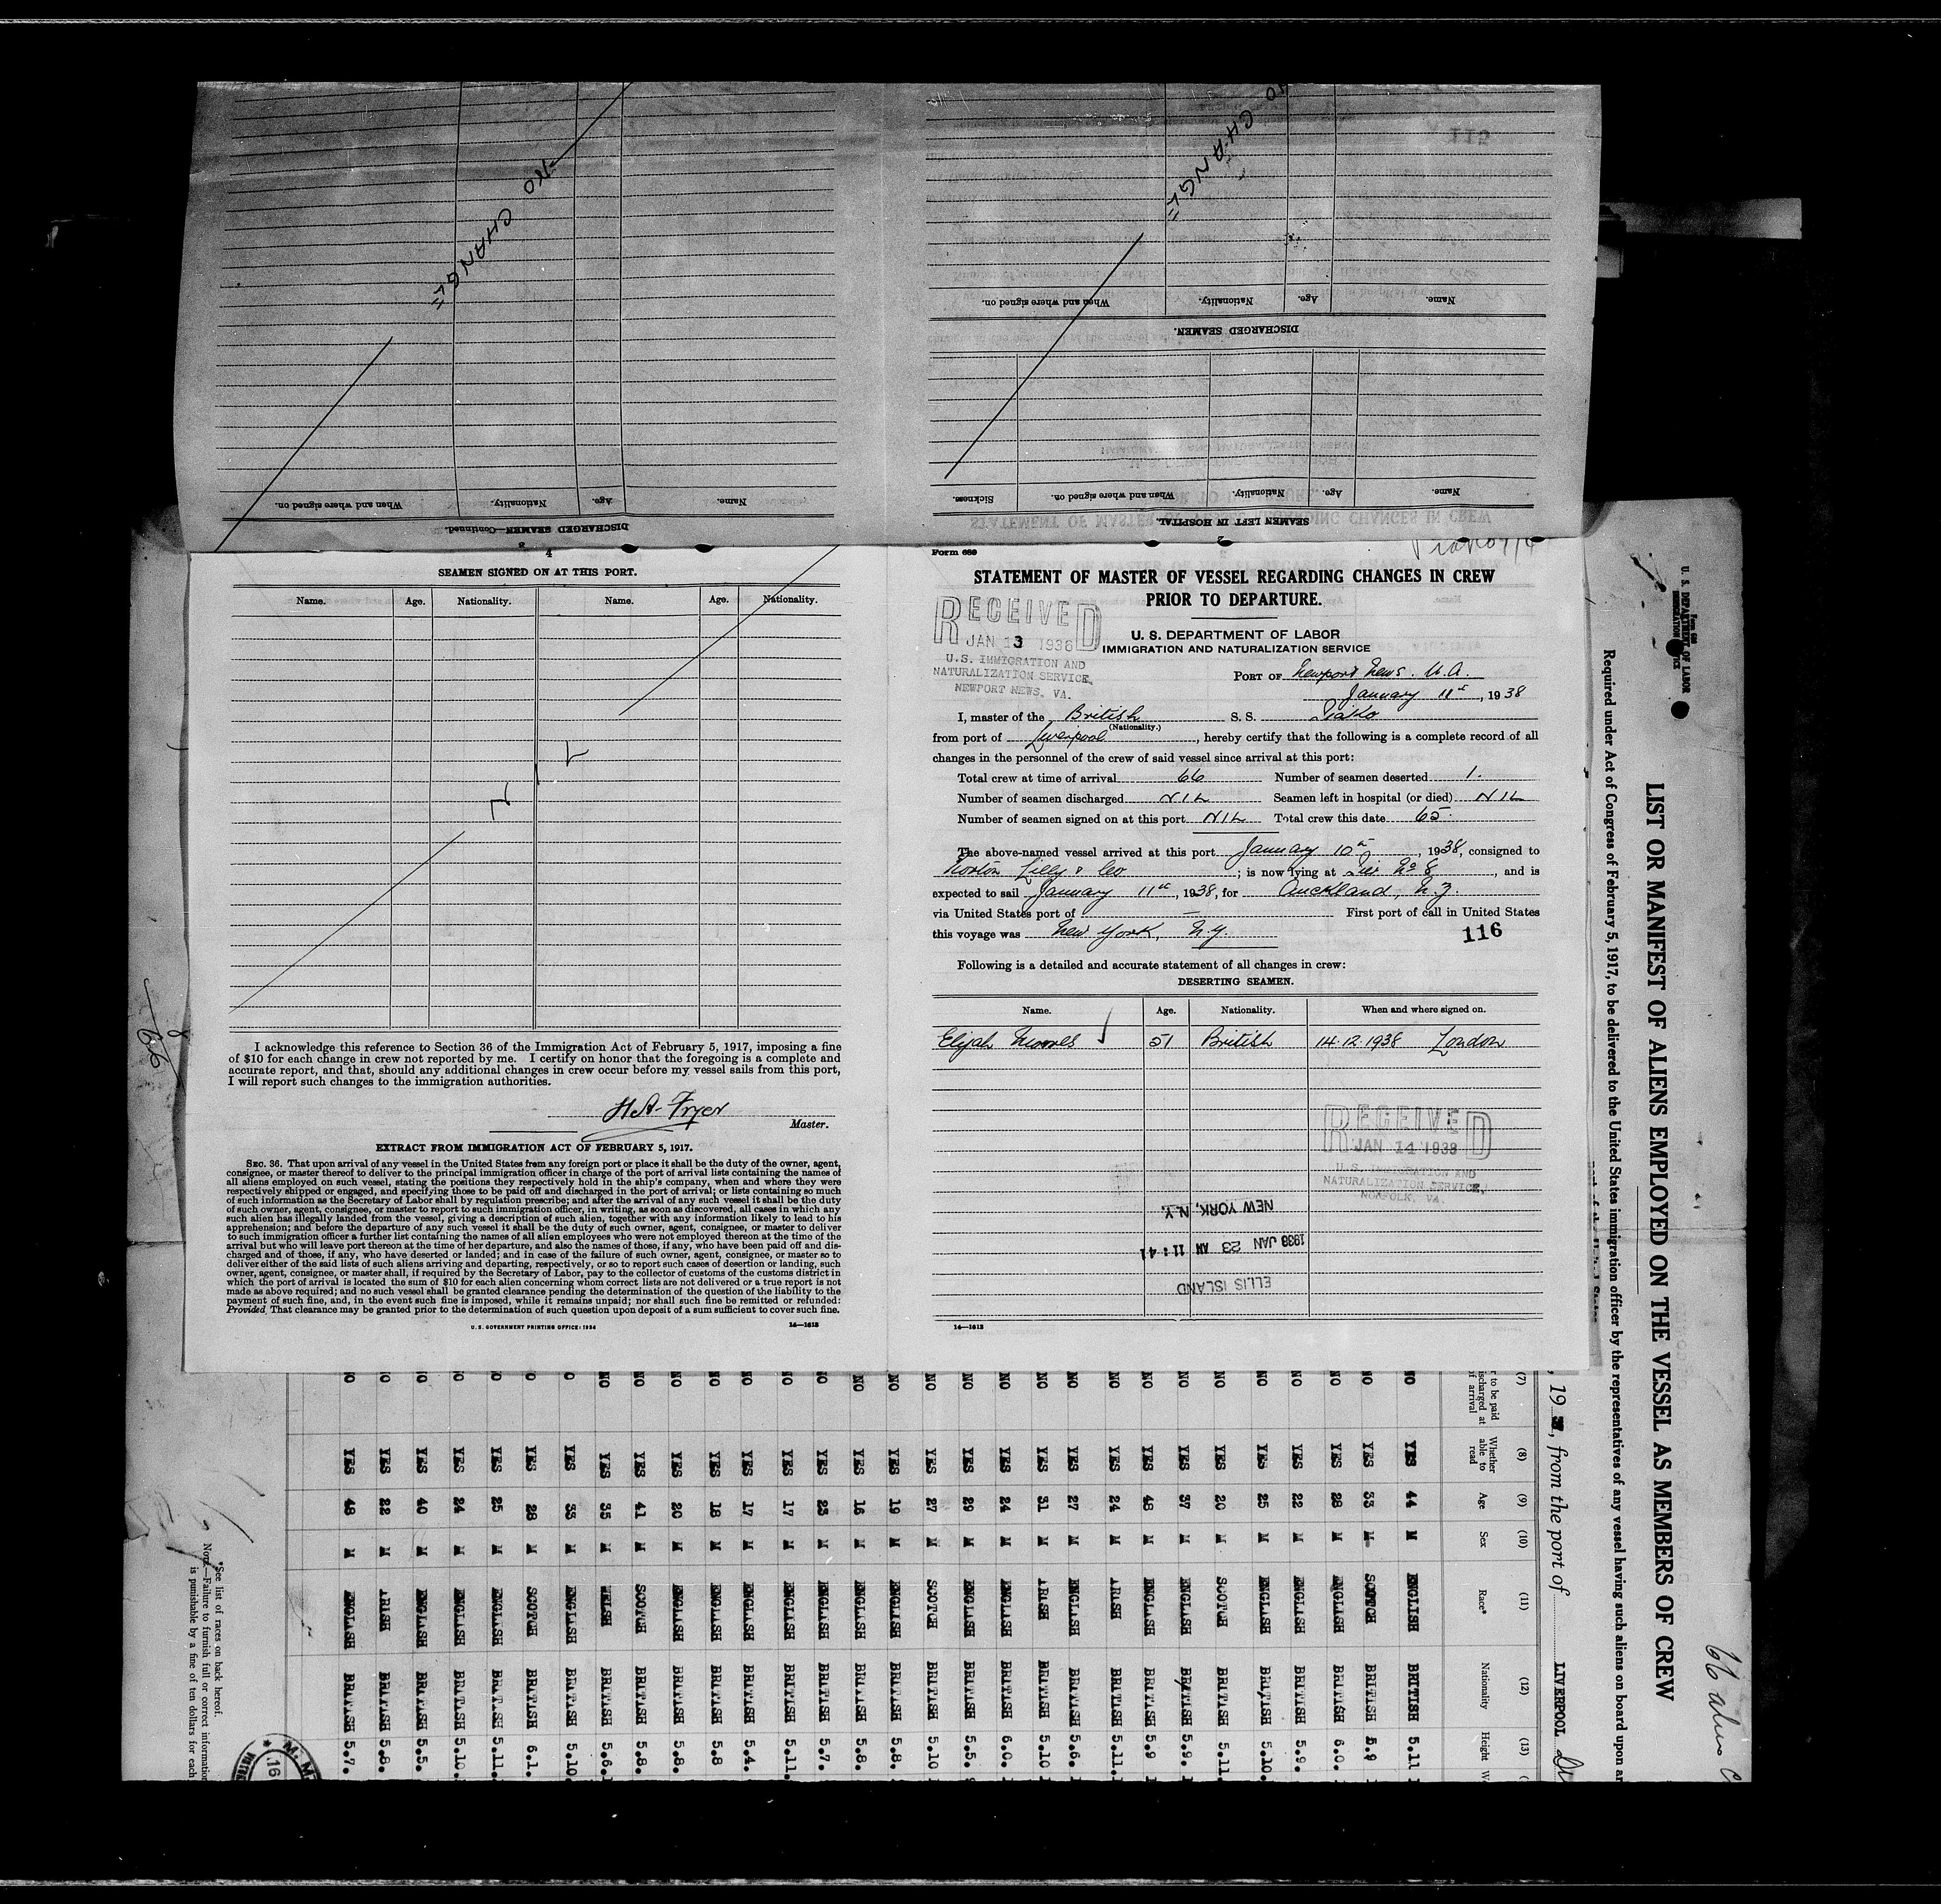 NO CHANGE
DISCHARGED SEAMEN—Continued.
Name. Age. Nationality. When and where signed on.
3
CHANGE
DISCHARGED SEAMEN.
Name. Age. Nationality. When and where signed on.
SEAMEN LEFT IN HOSPITAL.
Name. Age. Nationality. When and where signed on. Sickness.
2
4
SEAMEN SIGNED ON AT THIS PORT.
Name. Age. Nationality. Name. Age. Nationality.
N I L
I acknowledge this reference to Section 36 of the Immigration Act of February 5, 1917, imposing a fine
of $10 for each change in crew not reported by me. I certify on honor that the foregoing is a complete and
accurate report, and that, should any additional changes in crew occur before my vessel sails from this port,
I will report such changes to the immigration authorities.
H.A. Fryer
Master.
EXTRACT FROM IMMIGRATION ACT OF FEBRUARY 5, 1917.
SEC. 36. That upon arrival of any vessel in the United States from any foreign port or place it shall be the duty of the owner, agent,
consignee, or master thereof to deliver to the principal immigration officer in charge of the port of arrival lists containing the names of
all aliens employed on such vessel, stating the positions they respectively hold in the ship's company, when and where they were
respectively shipped or engaged, and specifying those to be paid off and discharged in the port of arrival; or lists containing so much
of such information as the Secretary of Labor shall by regulation prescribe; and after the arrival of any such vessel it shall be the duty
of such owner, agent, consignee, or master to report to such immigration officer, in writing, as soon as discovered, all cases in which any
such alien has illegally landed from the vessel, giving a description of such alien, together with any information likely to lead to his
apprehension; and before the departure of any such vessel it shall be the duty of such owner, agent, consignee, or master to deliver
to such immigration officer a further list containing the names of all alien employees who were not employed thereon at the time of the
arrival but who will leave port thereon at the time of her departure, and also the names of those, if any, who have been paid off and dis-
charged and of those, if any, who have deserted or landed; and in case of the failure of such owner, agent, consignee, or master so to
deliver either of the said lists of such aliens arriving and departing, respectively, or so to report such cases of desertion or landing, such
owner, agent, consignee, or master shall, if required by the Secretary of Labor, pay to the collector of customs of the customs district in
which the port of arrival is located the sum of $10 for each alien concerning whom correct lists are not delivered or a true report is not
made as above required; and no such vessel shall be granted clearance pending the determination of the question of the liability to the
payment of such fine, and, in the event such fine is imposed, while it remains unpaid; nor shall such fine be remitted or refunded:
Provided, That clearance may be granted prior to the determination of such question upon deposit of a sum sufficient to cover such fine.
U. S. GOVERNMENT PRINTING OFFICE: 1934
14—1613
Form 689
STATEMENT OF MASTER OF VESSEL REGARDING CHANGES IN CREW
PRIOR TO DEPARTURE.
RECEIVED
JAN 13 1938
U.S. IMMIGRATION AND
NATURALIZATION SERVICE,
NEWPORT NEWS, VA.
U. S. DEPARTMENT OF LABOR
IMMIGRATION AND NATURALIZATION SERVICE
PORT OF Newport News. U.A.
January 11th, 1938
I, master of the British S. S. Piako
(Nationality.)
from port of Liverpool, hereby certify that the following is a complete record of all
changes in the personnel of the crew of said vessel since arrival at this port:
Total crew at time of arrival 66 Number of seamen deserted 1.
Number of seamen discharged NIL Seamen left in hospital (or died) NIL
Number of seamen signed on at this port NIL Total crew this date 65.
The above-named vessel arrived at this port January 10th, 1938, consigned to
Norton Lilly & Co; is now lying at Pier No 8, and is
expected to sail January 11th, 1938, for Auckland, N.Z.
via United States port of — First port of call in United States
this voyage was New York, N.Y.
116
Following is a detailed and accurate statement of all changes in crew:
DESERTING SEAMEN.
Name. Age. Nationality. When and where signed on.
Elijah Moores 51 British 14.12.1938 London
RECEIVED
JAN 14 1938
U.S. IMMIGRATION AND
NATURALIZATION SERVICE,
NORFOLK, VA.
ELLIS ISLAND
1938 JAN 23 AM 11:41
NEW YORK, N.Y.
14—1613
U. S. DEPARTMENT OF LABOR
LIST OR MANIFEST OF ALIENS EMPLOYED ON THE VESSEL AS MEMBERS OF CREW
Required under Act of Congress of February 5, 1917, to be delivered to the United States immigration officer by the representatives of any vessel having such aliens on board upon ar
, 19 , from the port of LIVERPOOL
66 aliens
(7) (8) (9) (10) (11) (12) (13)
to be paid
discharged at
of arrival
Whether able to read Age Sex Race* Nationality Height
NO YES 44 M ENGLISH BRITISH 5.11
NO YES 33 M SCOTCH BRITISH 5.9
NO YES 28 M ENGLISH BRITISH 6.0.
NO YES 22 M ENGLISH BRITISH 5.9.
NO YES 25 M ENGLISH BRITISH 5.10.
NO YES 20 M SCOTCH BRITISH 5.11.
NO YES 37 M ENGLISH BRITISH 5.9.
NO YES 48 M ENGLISH BRITISH 5.9
NO YES 24 M IRISH BRITISH 5.11.
NO YES 27 M ENGLISH BRITISH 5.6.
NO YES 31 M IRISH BRITISH 5.10
NO YES 24 M ENGLISH BRITISH 6.0.
NO YES 29 M ENGLISH BRITISH 5.5.
NO YES 27 M SCOTCH BRITISH 5.10
NO YES 19 M ENGLISH BRITISH 5.8.
NO YES 16 M ENGLISH BRITISH 5.8.
NO YES 23 M ENGLISH BRITISH 5.7.
NO YES 17 M ENGLISH BRITISH 5.11.
NO YES 17 M ENGLISH BRITISH 5.4.
NO YES 18 M ENGLISH BRITISH 5.8
NO YES 20 M ENGLISH BRITISH 5.8.
NO YES 41 M SCOTCH BRITISH 5.8.
NO YES 35 M WELSH BRITISH 5.6.
O YES 33 M ENGLISH BRITISH 5.10.
NO YES 28 M SCOTCH BRITISH 6.1.
NO YES 25 M ENGLISH BRITISH 5.11.
NO YES 24 M ENGLISH BRITISH 5.10.
NO YES 40 M ENGLISH BRITISH 5.5.
NO YES 22 M IRISH BRITISH 5.8.
NO YES 48 M ENGLISH BRITISH 5.7.
*See list of races on back hereof.
NOTE.—Failure to furnish full or correct information
is punishable by a fine of ten dollars for each
66